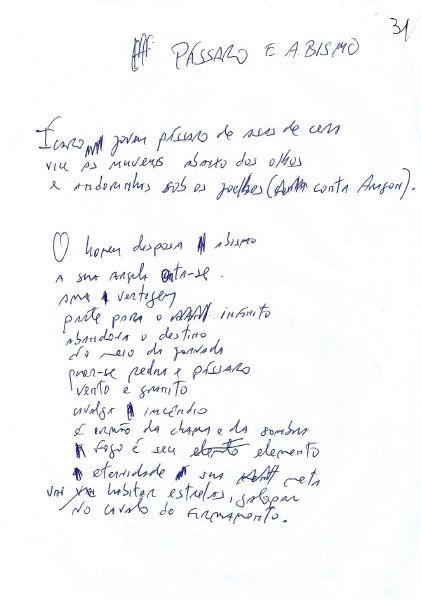 31
PÁSSARO E ABISMO
Ícaro jovem pássaro de asas de cera
viu as nuvens abaixo dos olhos
e andorinhas sob os joelhos (conta Aragon).
O homem desposa abismo
a sua ata-se.
ama vertigem
parte para o infinito
abandona o destino
no meio da jornada
pedra e pássaro
vento e granito
incêndio
é irmão da chama e da sombra
fogo é seu elemento
eternidade sua meta
vai habitar estrelas, galopar
no cavalo do firmamento.